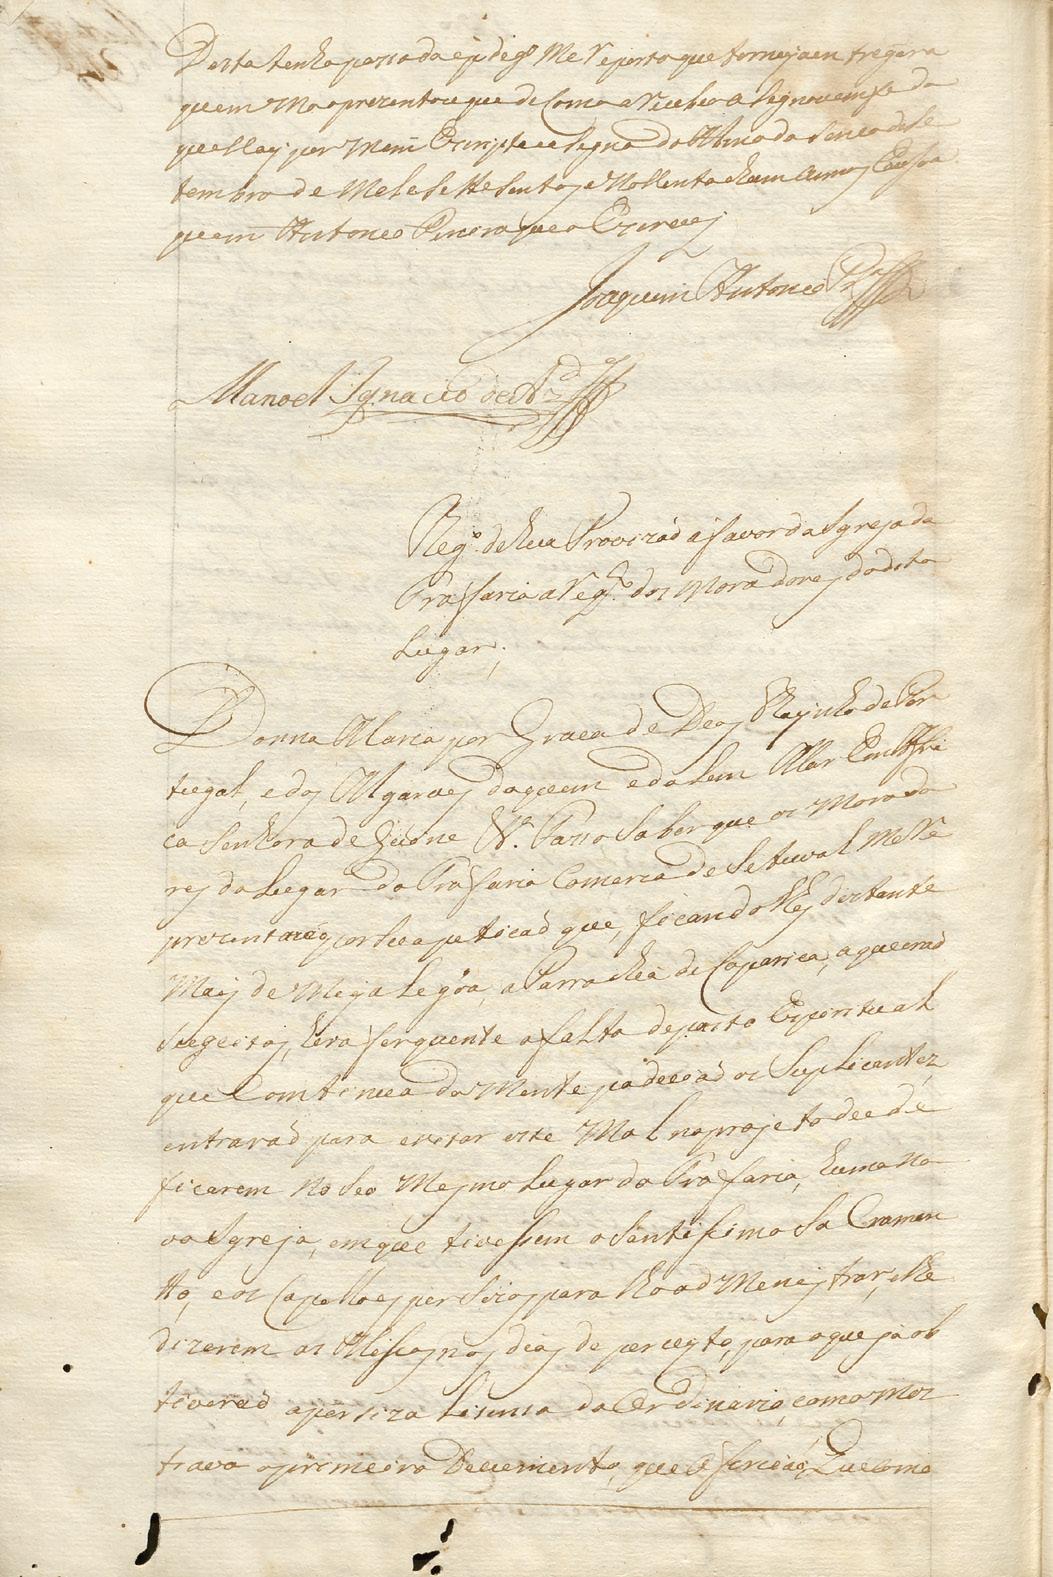 Desta tenho passado e pidego Me Reporto que tornej a en tregar a
quem Mo aprezentou que de Como a Recebeo a Signou em fe da
quel Caj por Mim Escripto e Signado Almada Sinco de Se
tembro de Mele Sette Sentos e Nollenta e hum annos Eu Joa
quem Antoneo Pinera que o Escrevej
Joaquim Antoneo Pra
Manoel Ignacio de Ad
Rego. de hua Provizaõ a favor da Igreja da
Trafaria a Reqto. dos Moradores do dito
Lugar;
Donna Maria por Graca de Deos Raynha de Por
tugal, e dos Algarves daquem e dalem Mar Em Affri
ca Senhora de Guone &a. Fasso Saber que os Morado
res do Lugar da Trafaria Comerca de Setuval Me Re
prezentaraõ por Sua peticaõ que, ficando lhes distante
Mais de Meya Legoa, a Parrochia de Caparica, a que eraõ
Sugeitos, hera ferquente a falta de pasto Espiritual
que Comtinuadamente padeciaõ os Suplicantes,
entravaõ para evitar este Mal no projeto de ede
ficarem no Seo Mesmo Lugar da Trafaria, huma No
va Igreja, em que tivessem o Santissimo Sa Cramen
tto, e os Capellaes persizos para lho ad Menestrar, e lhe
dizerem as Missas nos dias de perceyto, para o que ja ob
tiveraõ a persiza Lisensa do Ordinario, como Mos
trava o primeiro Documento, que oferciaõ, E u como